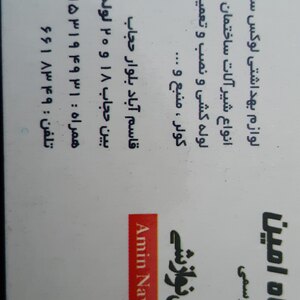 ه امین
رسمی
نوازشی
Amin Na
لوازم بهداشتی لوکس س
انواع شیرآلات ساختمان
لوله کشی و نصب و تعمی
کولر ، منبع و ...
قاسم آباد بلوار حجاب
بین حجاب ۱۸ و ۲۰ لوله
همراه : ۱۵۳۱۹۴۹۳۱
تلفن : ۶۶۱۸۳۴۹